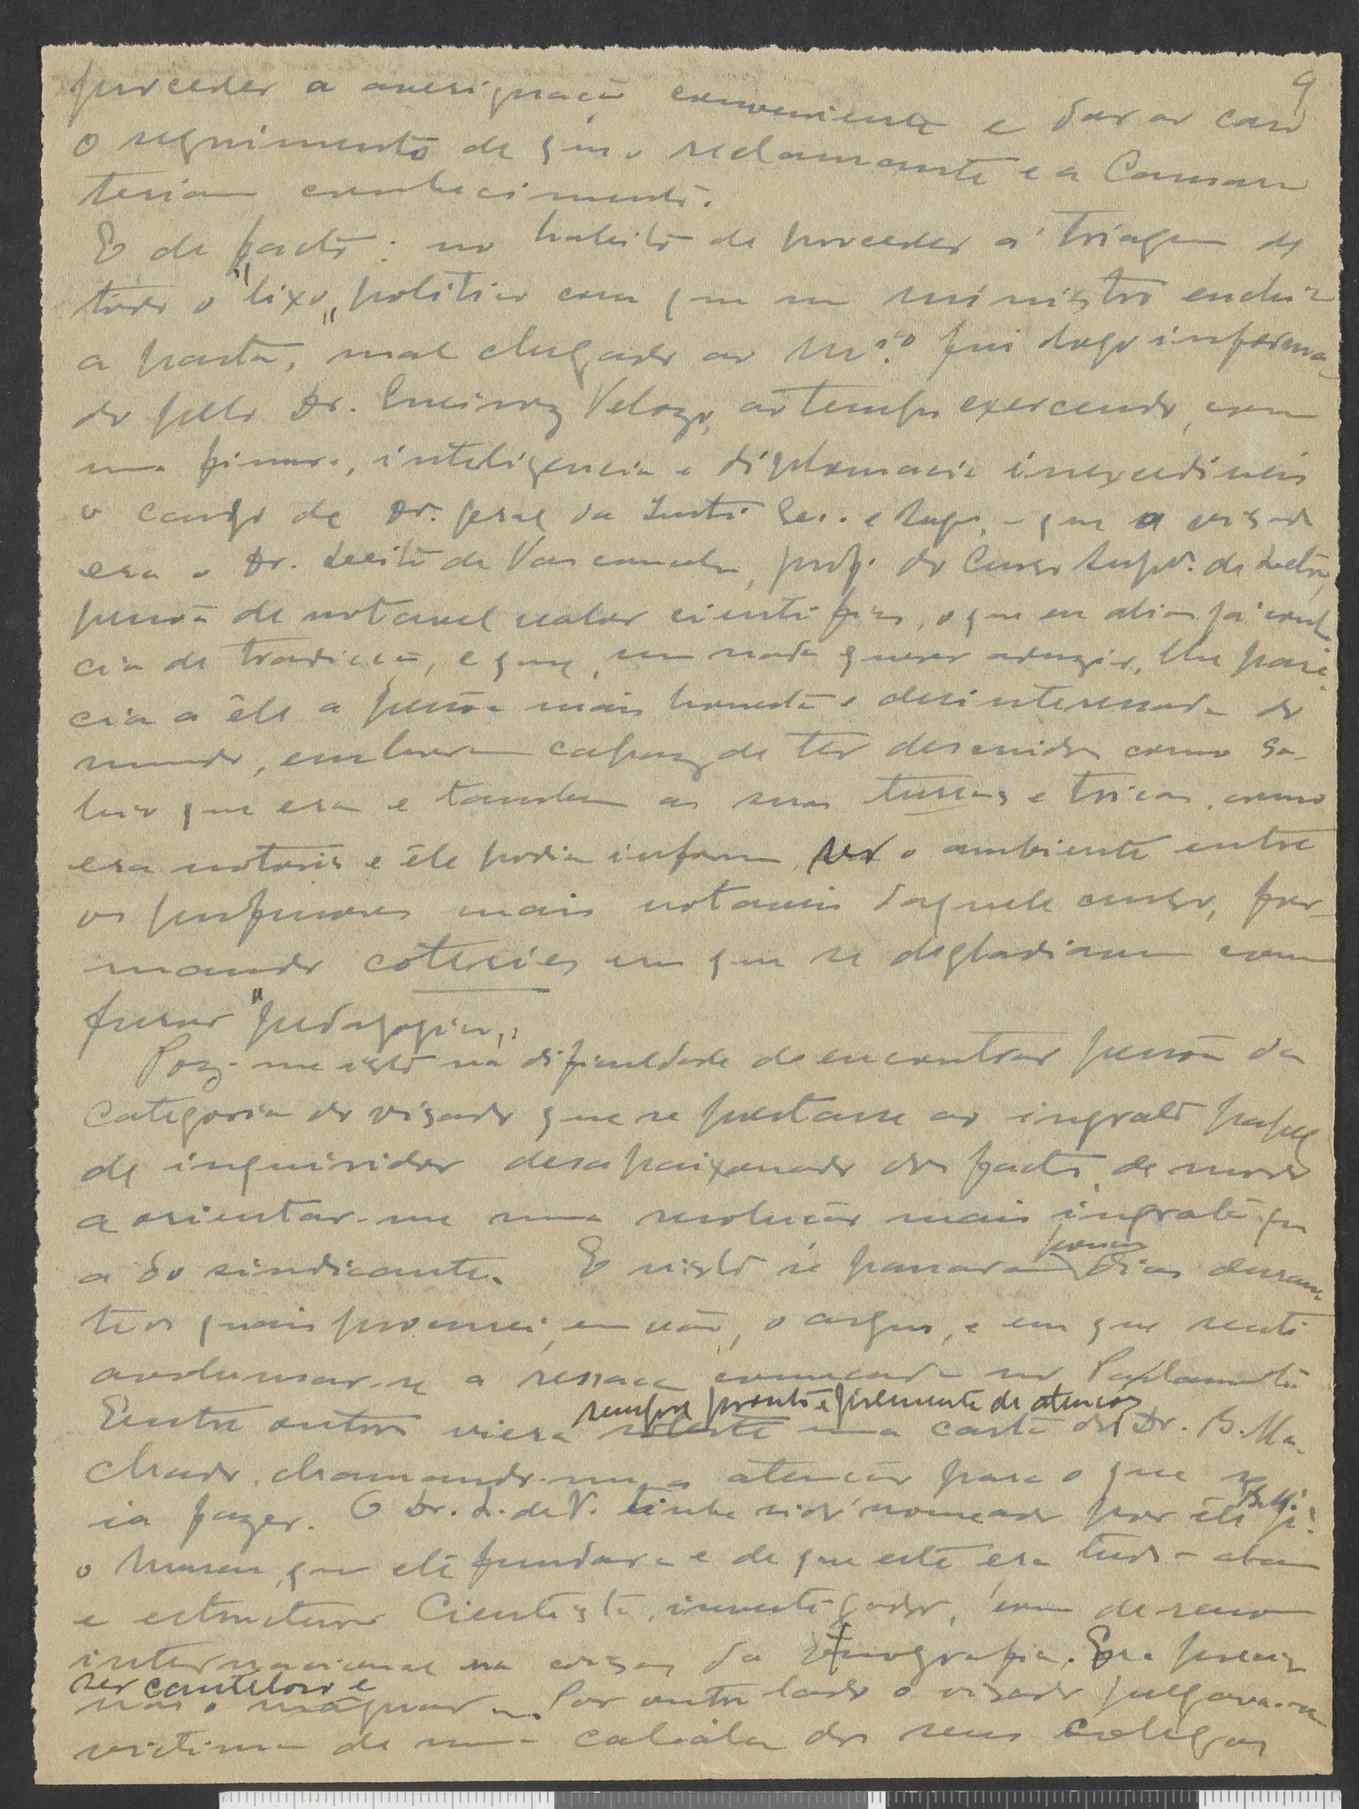 9
proceder a averiguação conveniente e dar ao caso
o seguimento de que o reclamante e a Camara
teriam conhecimento.
E de facto: no habito de proceder á triagem de
todo o "lixo" politico com que um ministro enche
a pasta, mal chegado ao Mio. fui logo informa-
do pelo Dr. Queiroz Velozo, ao tempo exercendo, com
uma finura, inteligencia e diplomacia inexcediveis
o cargo de Dr. geral da Instr. Sec. e Sup., - que o visado
era o Dr. Leite de Vasconcelos, prof. do Curso Supr. de Letras,
pessoa de notavel valor cientifico, o que eu aliás já conhe-
cia de tradicção, e que, sem nada querer aduzir, lhe pare-
cia a êle a pessoa mais honesta e desinteressada do
mundo, embora capaz de ter descuidos como sa-
bio que era e tambem as suas turras e tricas, como
era notorio e êle podia informar ser o ambiente entre
os professores mais notaveis daquele curso, for-
mando coteries em que se degladiavam com
furor "pedagogico".
Poz-me isto na dificuldade de encontrar pessoa da
categoria do visado que se prestasse ao ingrato papel
de inquiridor desapaixonado dos factos, de modo
a orientar-me numa resolução mais ingrata que
a do sindicante. E nisto se passaram poucos dias duran-
te os quais procurei, em vão, o argus, e em que senti
avolumar-se a ressaca começada no Parlamento
Entre outros viera sempre pronto e fremente de atenções uma carta do Dr. B. Ma-
chado, chamando-me a atenção para o que se
ia fazer. O Dr. L. de V. tinha sido nomeado por êle B. M. pa.
o Museu, que ele fundara e de que este era tudo - alma
e estructura Cientista, investigador, com de renome
internacional na coisas da Etnografia. Era preciso
ser cauteloso e não o magoar. Por outro lado o visado julgava-se
victima de uma cabala dos seus colegas